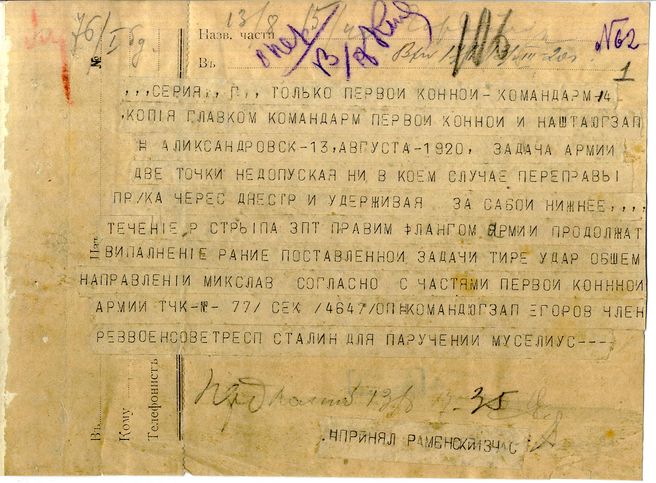 13/8
76/I бд.
№
Назв. части
Въ
опер
13/8
№62
1
,,,СЕРИЯ,, Г,, ТОЛЬКО ПЕРВОЙ КОННОЙ-КОМАНДАРМ 14
,КОПІЯ ГЛАВКОМ КОМАНДАРМ ПЕРВОЙ КОННОЙ И НАШТАЮГЗАП
Н АЛИКСАНДРОВСК-13,АВГУСТА-1920, ЗАДАЧА АРМИИ
ДВЕ ТОЧКИ НЕДОПУСКАЯ НИ В КОЕМ СЛУЧАЕ ПЕРЕПРАВЫ
ПР/КА ЧЕРЕС ДНЕСТР И УДЕРЖИВАЯ ЗА САБОЙ НИЖНЕЕ,,,,
ТЕЧЕНІЕ Р СТРЫПА ЗПТ ПРАВИМ ФЛАНГОМ АРМИИ ПРОДОЛЖАТ
ВИПАЛНЕНІЕ РАНИЕ ПОСТАВЛЕННОЙ ЗАДАЧИ ТИРЕ УДАР ОБШЕМ
НАПРАВЛЕНІЙ МИКСЛАВ СОГЛАСНО С ЧАСТЯМИ ПЕРВОЙ КОНННОЙ
АРМИИ ТЧК-№- 77/ СЕК /4647/ОПН КОМАНДЮГЗАП ЕГОРОВ ЧЛЕН
РЕВВОЕНСОВЕТРЕСП СТАЛИН ДЛЯ ПАРУЧЕНИИ МУСЕЛИУС----
13/8 35
.НПРИНЯЛ РАМЕНСКИ 13ЧАС
Въ
Кому
Телефонистъ